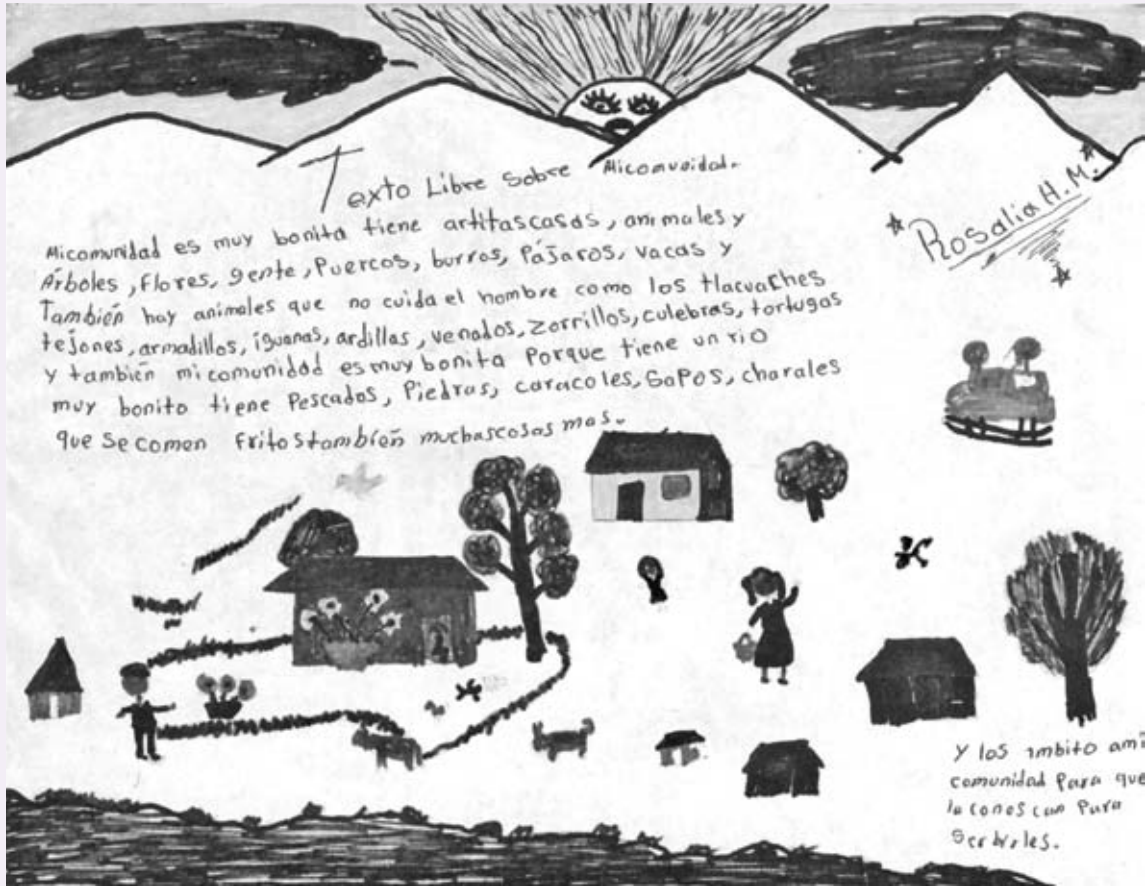 Texto Libre sobre Micomunidad.
Rosalia H. M.
Micomunidad es muy bonita tiene artitascasas, animales y
Árboles, flores, gente, Puercos, burros, Pájaros, vacas y
También hay animales que no cuida el hombre como los tlacuaches
tejones, armadillos, iguanas, ardillas, venados, zorrillos, culebras, tortugas
y también mi comunidad es muy bonita Porque tiene un rio
muy bonito tiene Pescados, Piedras, caracoles, Sapos, charales
que se comen fritostambién muchascosas mas.
Y los imbito ami
comunidad Para que
la conoscan Para
Serbirles.